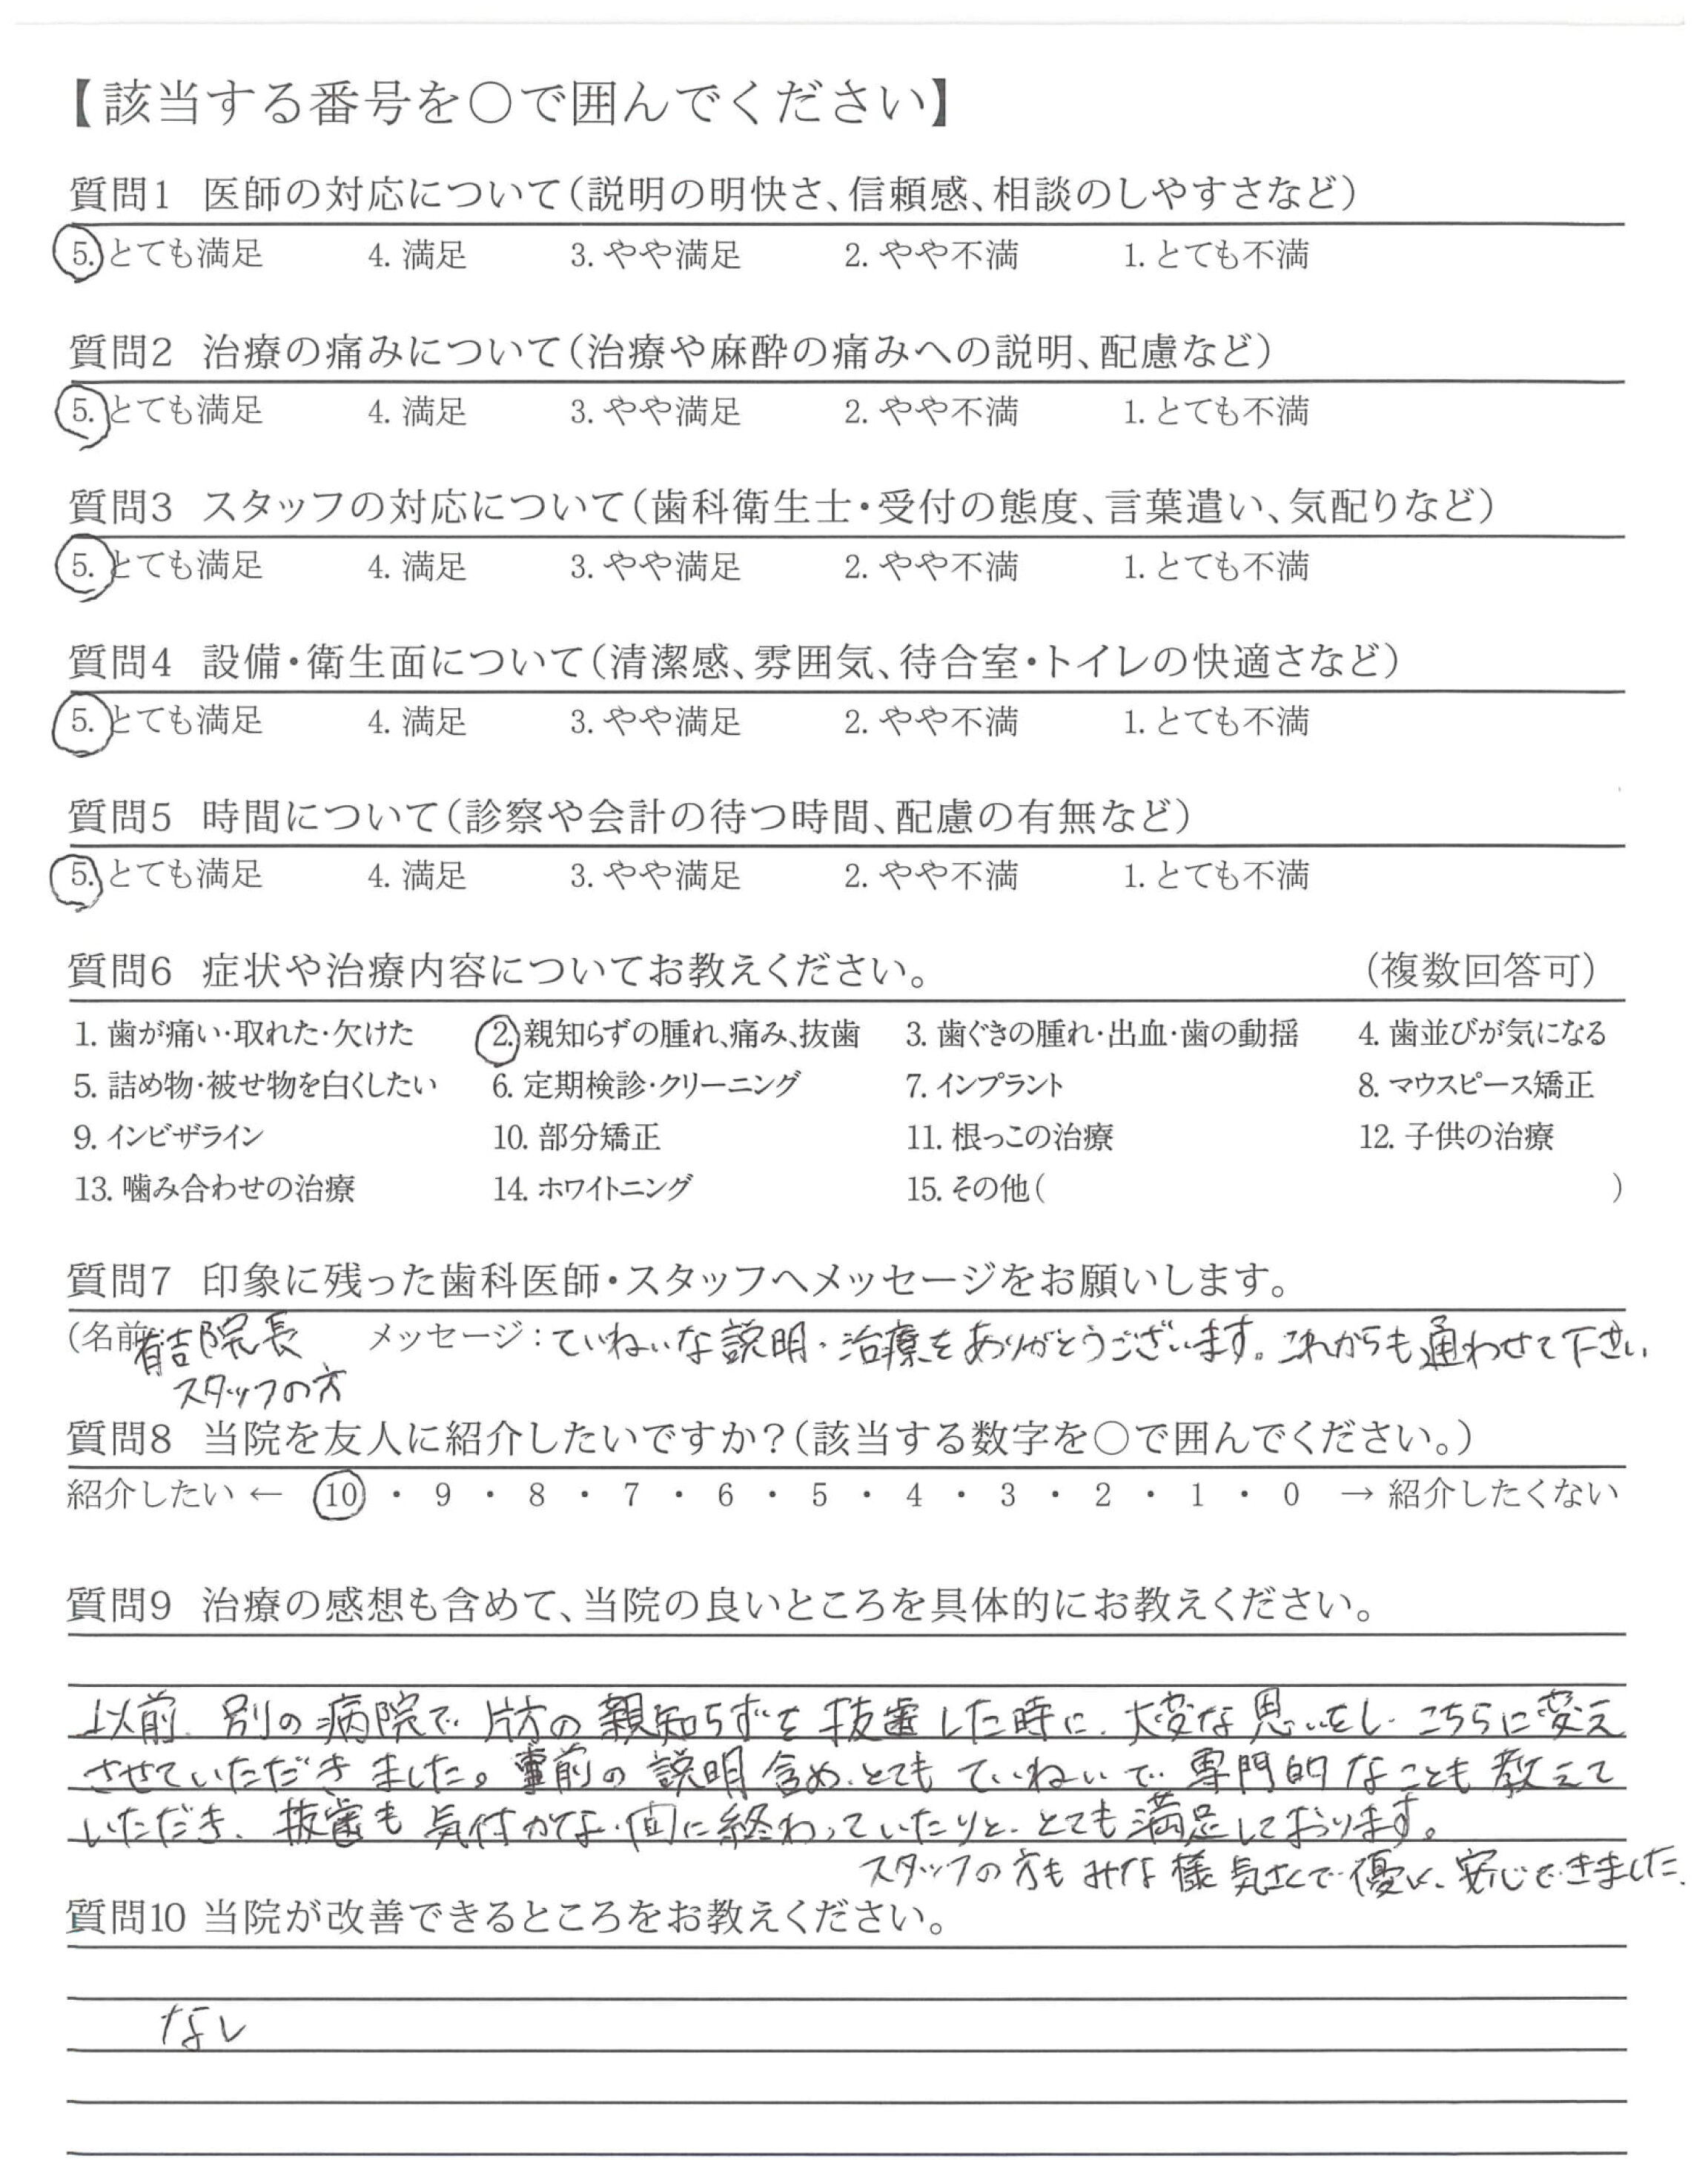 【該当する番号を○で囲んでください】
質問1 医師の対応について（説明の明快さ、信頼感、相談のしやすさなど）
5. とても満足 4. 満足 3. やや満足 2. やや不満 1. とても不満
質問2 治療の痛みについて（治療や麻酔の痛みへの説明、配慮など）
5. とても満足 4. 満足 3. やや満足 2. やや不満 1. とても不満
質問3 スタッフの対応について（歯科衛生士・受付の態度、言葉遣い、気配りなど）
5. とても満足 4. 満足 3. やや満足 2. やや不満 1. とても不満
質問4 設備・衛生面について（清潔感、雰囲気、待合室・トイレの快適さなど）
5. とても満足 4. 満足 3. やや満足 2. やや不満 1. とても不満
質問5 時間について（診察や会計の待つ時間、配慮の有無など）
5. とても満足 4. 満足 3. やや満足 2. やや不満 1. とても不満
質問6 症状や治療内容についてお教えください。 （複数回答可）
1. 歯が痛い・取れた・欠けた 2. 親知らずの腫れ、痛み、抜歯 3. 歯ぐきの腫れ・出血・歯の動揺 4. 歯並びが気になる
5. 詰め物・被せ物を白くしたい 6. 定期検診・クリーニング 7. インプラント 8. マウスピース矯正
9. インビザライン 10. 部分矯正 11. 根っこの治療 12. 子供の治療
13. 噛み合わせの治療 14. ホワイトニング 15. その他（ ）
質問7 印象に残った歯科医師・スタッフへメッセージをお願いします。
（名前: 有吉院長 メッセージ：ていねいな説明・治療をありがとうございます。これからも通わせて下さい
スタッフの方
質問8 当院を友人に紹介したいですか？（該当する数字を○で囲んでください。）
紹介したい ← 10 ・ 9 ・ 8 ・ 7 ・ 6 ・ 5 ・ 4 ・ 3 ・ 2 ・ 1 ・ 0 → 紹介したくない
質問9 治療の感想も含めて、当院の良いところを具体的にお教えください。
以前、別の病院で、片方の親知らずを抜歯した時に、大変な思いをし、こちらに変え
させていただきました。事前の説明含め、とてもていねいで、専門的なことも教えて
いただき、抜歯も気付かない間に終わっていたりと、とても満足しております。
スタッフの方もみな様気さくで優しく、安心できました。
質問10 当院が改善できるところをお教えください。
なし